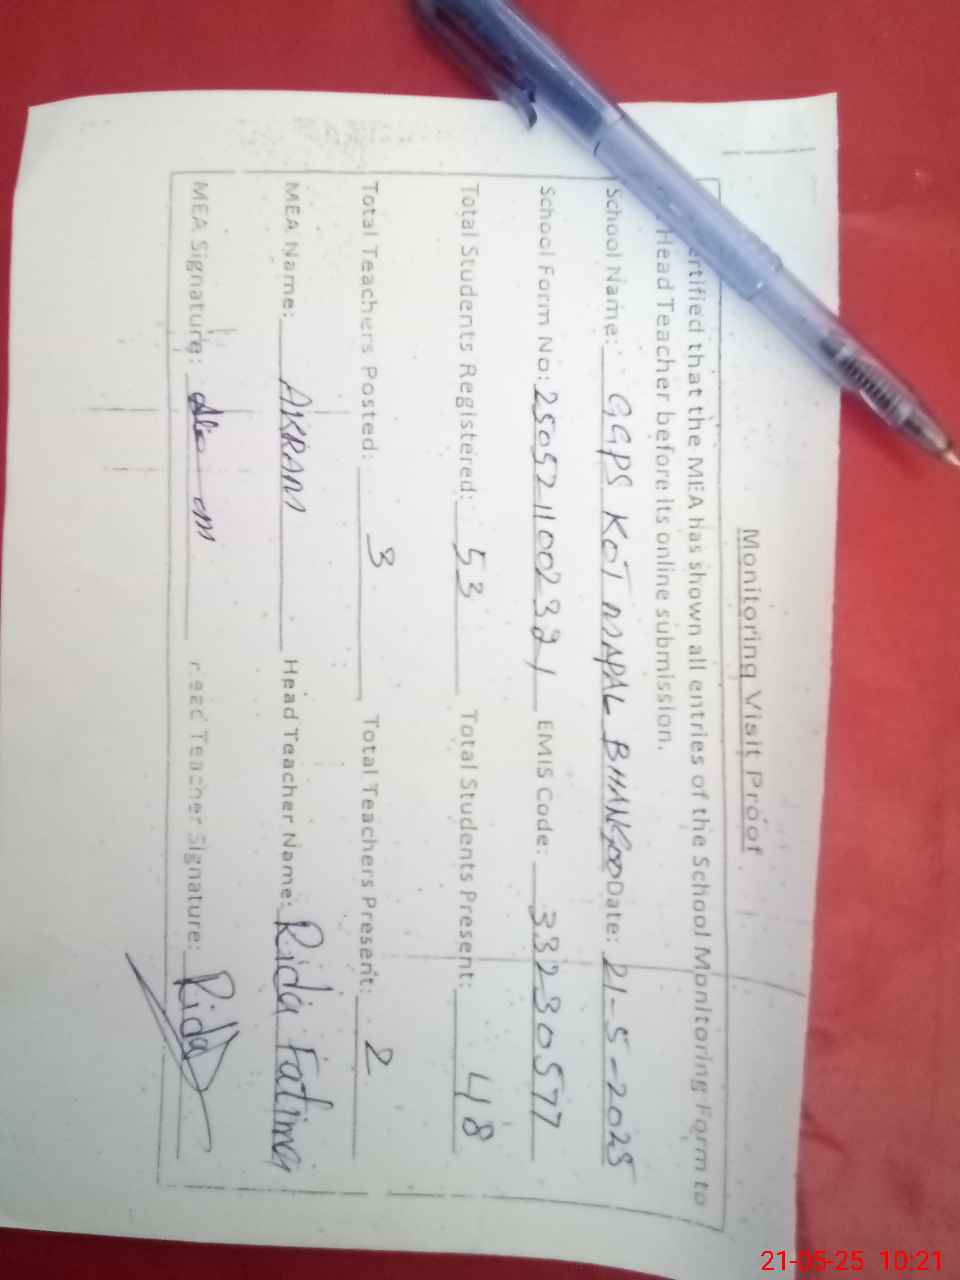 Monitoring Visit Proof
ertified that the MEA has shown all entries of the School Monitoring Form to
Head Teacher before its online submission.
School Name: GGPS KOT MAPAL BHANGOO Date: 21-5-2025
School Form No: EMIS Code: 33230577
Total Students Registered: 53 Total Students Present: 48
Total Teachers Posted: 3 Total Teachers Present: 2
MEA Name: AKRAM Head Teacher Name: Rida Fatima
MEA Signature: Head Teacher Signature: Rida
21-05-25 10:21